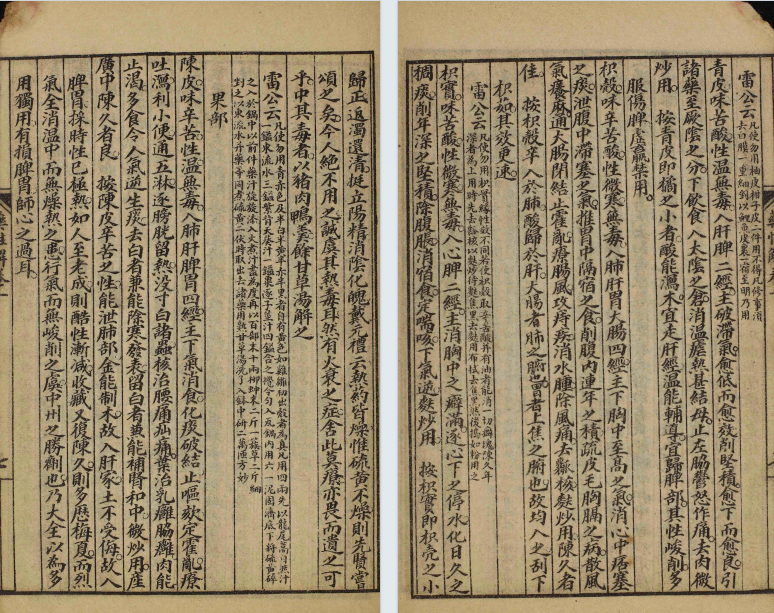 歸正返濁還清挺立陽精消陰化魄戴元禮云熱药皆燥惟硫黄不燥則先賢嘗
頌之矣今人絕不用之誠虞其熱毒耳然有火衰之症舍此莫療亦畏而遺之可
乎中其毒者以猪肉鴨羹餘甘草湯解之
雷公云凡使勿用青赤色及半白半青半赤半黑者自有黄色如雞雛初出殼者為真凡用四兩先以龍尾蒿自然汁
一鎰東流水三鎰紫背天葵汁一鎰粟逐子莖汁四鎰合之攪令匀入瓦鍋內用六一泥固濟底下將硫黄碎
之入於鍋中以前件藥汁旋旋添入火煮汁盡為度再以百部末十兩柳蚛末二斤一簇草二斤細
剉之以東流水并藥等同煮硫黄二伏時取出去諸藥用熱甘草湯洗了入鉢中研二萬匝方妙
果部
陳皮味辛苦性温無毒入肺肝脾胃四經主下氣消食化痰破結止嘔欬定霍亂療
吐瀉利小便通五淋逐膀胱留熱殺寸白諸蟲核治腰痛疝痛葉治乳癰脇癰肉能
止渴多食令人氣逆生痰去白者兼能除寒發表留白者兼能補脾和中微炒用産
廣中陳久者良 按陳皮辛苦之性能泄肺部金能制木故入肝家土不受侮故入
脾胃採時性已極熱如人至老成則酷性漸減收藏又復陳久則多歷梅夏而烈
氣全消温中而無燥熱之患行氣而無峻削之虞中州之勝劑也乃大全以為多
用獨用有損脾胃師心之過耳
雷公云凡使勿用柚皮皺子皮二件用不得凡修事須
去白膜一重細剉以鯉魚皮裹一宿至明乃用
青皮味苦酸性温無毒入肝脾二經主破滯氣愈低而愈效削堅積愈下而愈良引
諸藥至厥陰之分下飲食入太陰之倉消温瘧熱甚結母止左脇鬱然作痛去肉微
炒用 按青皮即橘之小者酸能瀉木宜走肝經温能輔導宜歸脾部其性峻削多
服傷脾虚羸禁用
枳殼味辛苦酸性微寒無毒入肺肝胃大腸四經主下胸中至高之氣消心中痞塞
之痰泄腹中滯塞之氣推胃中隔宿之食削腹內連年之積疏皮毛胸膈之病散風
氣癢麻通大腸閉結止霍亂療腸風攻痔疾消水腫除風痛去瓤核麩炒用陳久者
佳 按枳殼辛入於肺酸歸於肝大腸者肺之腑胃者上焦之腑也故均入之刮下
枳如其效更速
雷公云凡使勿用枳實緣性效不同若使枳殼取辛苦酸并有油者能消一切癖塊陳久年
深者為上用時先去瓤核以麩炒待麩焦黑去麩用布拭去焦黑然後搗如粉用之
枳實味苦酸性微寒無毒入心脾二經主消胸中之痞滿逐心下之停水化日久之
稠痰削年深之堅積除腹脹消宿食定喘咳下氣逆麩炒用 按枳實即枳壳之小